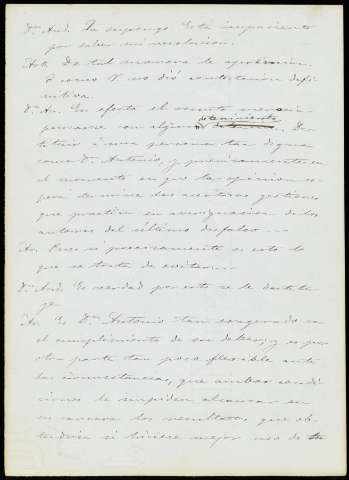 Dn. And. Ya supongo. Está impaciente
por saber mi resolucion.
Art. De tal manera le apremian.
I como V. no dió contestacion defi-
nitiva.
Dn. An. En efecto el asunto merecia
pensarse con algun detenimiento. Des-
tituir á una persona tan digna
como Dn. Antonio, y precisamente en
el momento en que la opinion es-
pera termine las activas gestiones
que practica en averiguacion de los
autores del último desfalco...
Ar. Pues si precisamente es esto lo
que se trata de evitar...
Dn. And. Es verdad por esto se le destitu-
ye.
Ar. Es Dn. Antonio tan exagerado en
el cumplimiento de su deber, y es por
otra parte tan poco flexible ante
las circunstancias, que ambas condi-
ciones le impiden alcanzar en
su carrera los resultados que ob-
tendria si hiciese mejor uso de